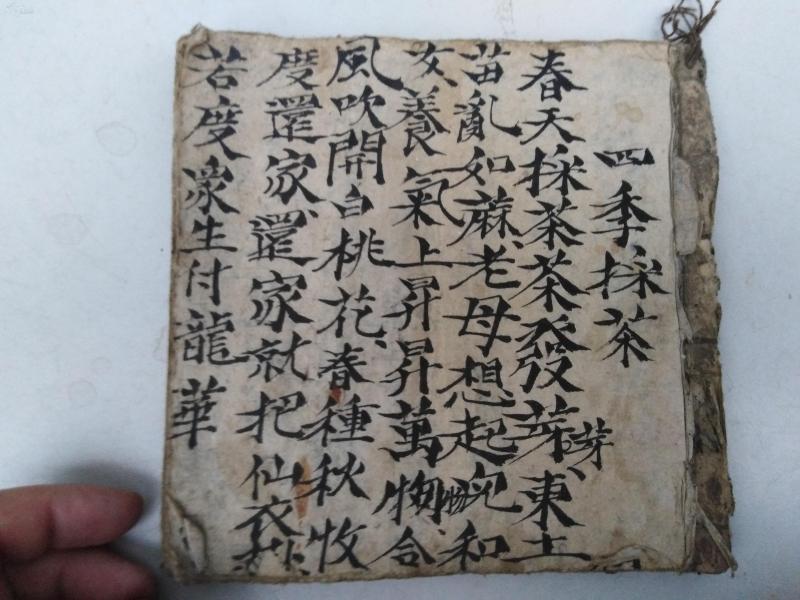 四季採茶
春天採茶茶發芽芽東土
苗亂如蔴老母想起兒和
女養氣上昇昇萬物合
風吹開白桃花春種秋收
度還家還家就把仙衣
若度衆生付龍華